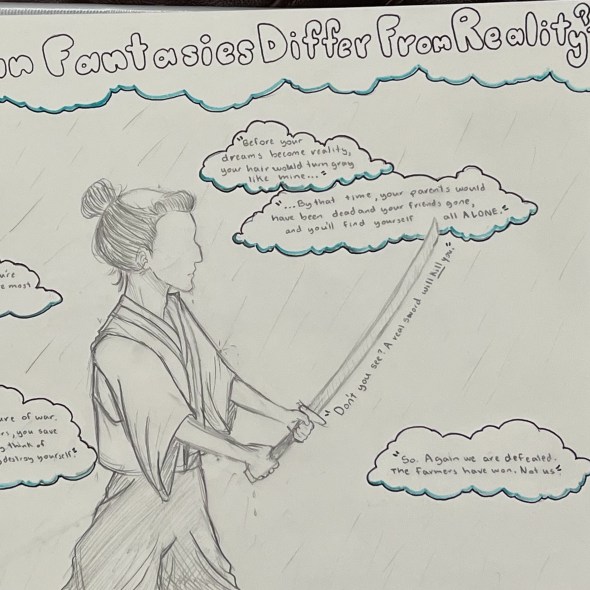 Fantasies Differ From Reality?
"Before your
dreams become reality,
your hair would turn gray
like mine..."
"...By that time, your parents would
have been dead and your friends gone,
and you'll find yourself all ALONE."
u're
e most
"Don't you see? A real sword will kill you."
ure of war.
rs, you save
y think of
destroy yourself."
"So. Again we are defeated.
The farmers have won. Not us"